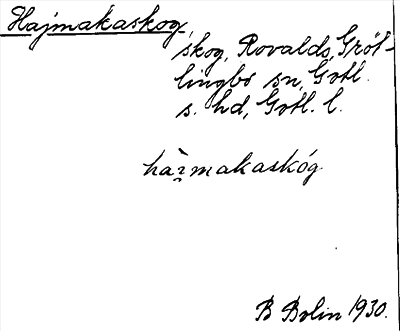 Hajmakaskog,
skog, Rovalds, Gröt-
lingbo sn, Gotl.
s. hd, Gotl. l.
hai̯makaskóg
B Bolin 1930.